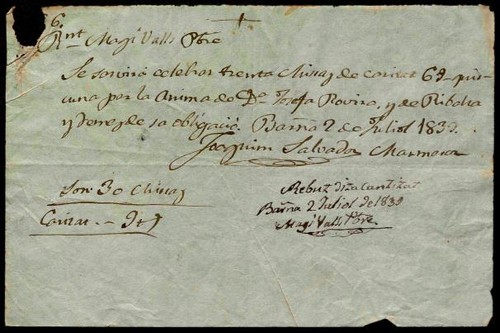 6.
Rnt Magí Valls Pbre
Se servirá celebrar trenta Missas de caritat 6 quis-
cuna por la Anima de Da Josefa Rovira, y de Ribalta
y Dones de sa obligació. Barna 2 de Juliol 1839.
Joaquim Salvador Marmessor
Son 30 Missas
Caritat - 9
Rebuz dita cantitat
Barna 2 Juliol de 1839
Magí Valls Pbre